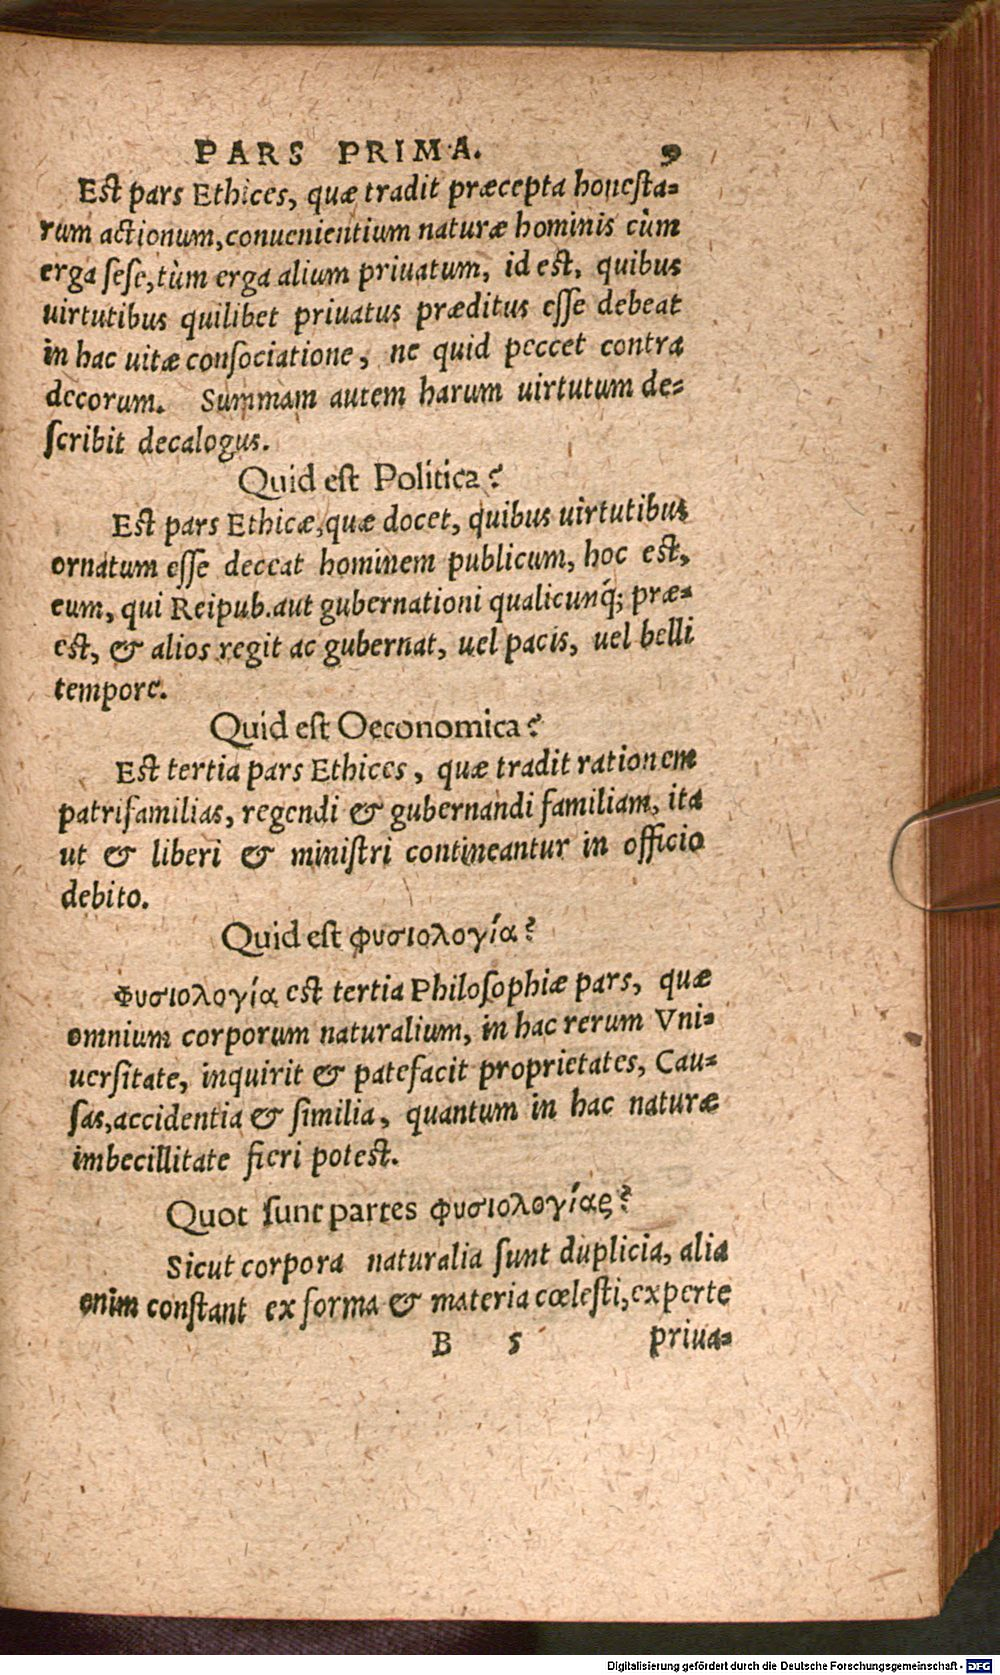 PARS PRIMA. 9
Est pars Ethices, quæ tradit præcepta honesta-
rum actionum, conuenientium naturæ hominis cùm
erga sese, tùm erga alium priuatum, id est, quibus
uirtutibus quilibet priuatus præditus esse debeat
in hac uitæ consociatione, ne quid peccet contra
decorum. Summam autem harum uirtutum de-
scribit decalogus.
Quid est Politica?
Est pars Ethicæ, quæ docet, quibus uirtutibus
ornatum esse deceat hominem publicum, hoc est,
eum, qui Reipub. aut gubernationi qualicunq́; præ-
est, & alios regit ac gubernat, uel pacis, uel belli
tempore.
Quid est Oeconomica?
Est tertia pars Ethices, quæ tradit rationem
patrifamilias, regendi & gubernandi familiam, ita
ut & liberi & ministri contineantur in officio
debito.
Quid est φυσιολογία?
Φυσιολογία est tertia Philosophiæ pars, quæ
omnium corporum naturalium, in hac rerum Vni-
uersitate, inquirit & patefacit proprietates, Cau-
sas, accidentia & similia, quantum in hac naturæ
imbecillitate fieri potest.
Quot sunt partes φυσιολογίας?
Sicut corpora naturalia sunt duplicia, alia
enim constant ex forma & materia cœlesti, experte
B 5 priua-
Digitalisierung gefördert durch die Deutsche Forschungsgemeinschaft - DFG